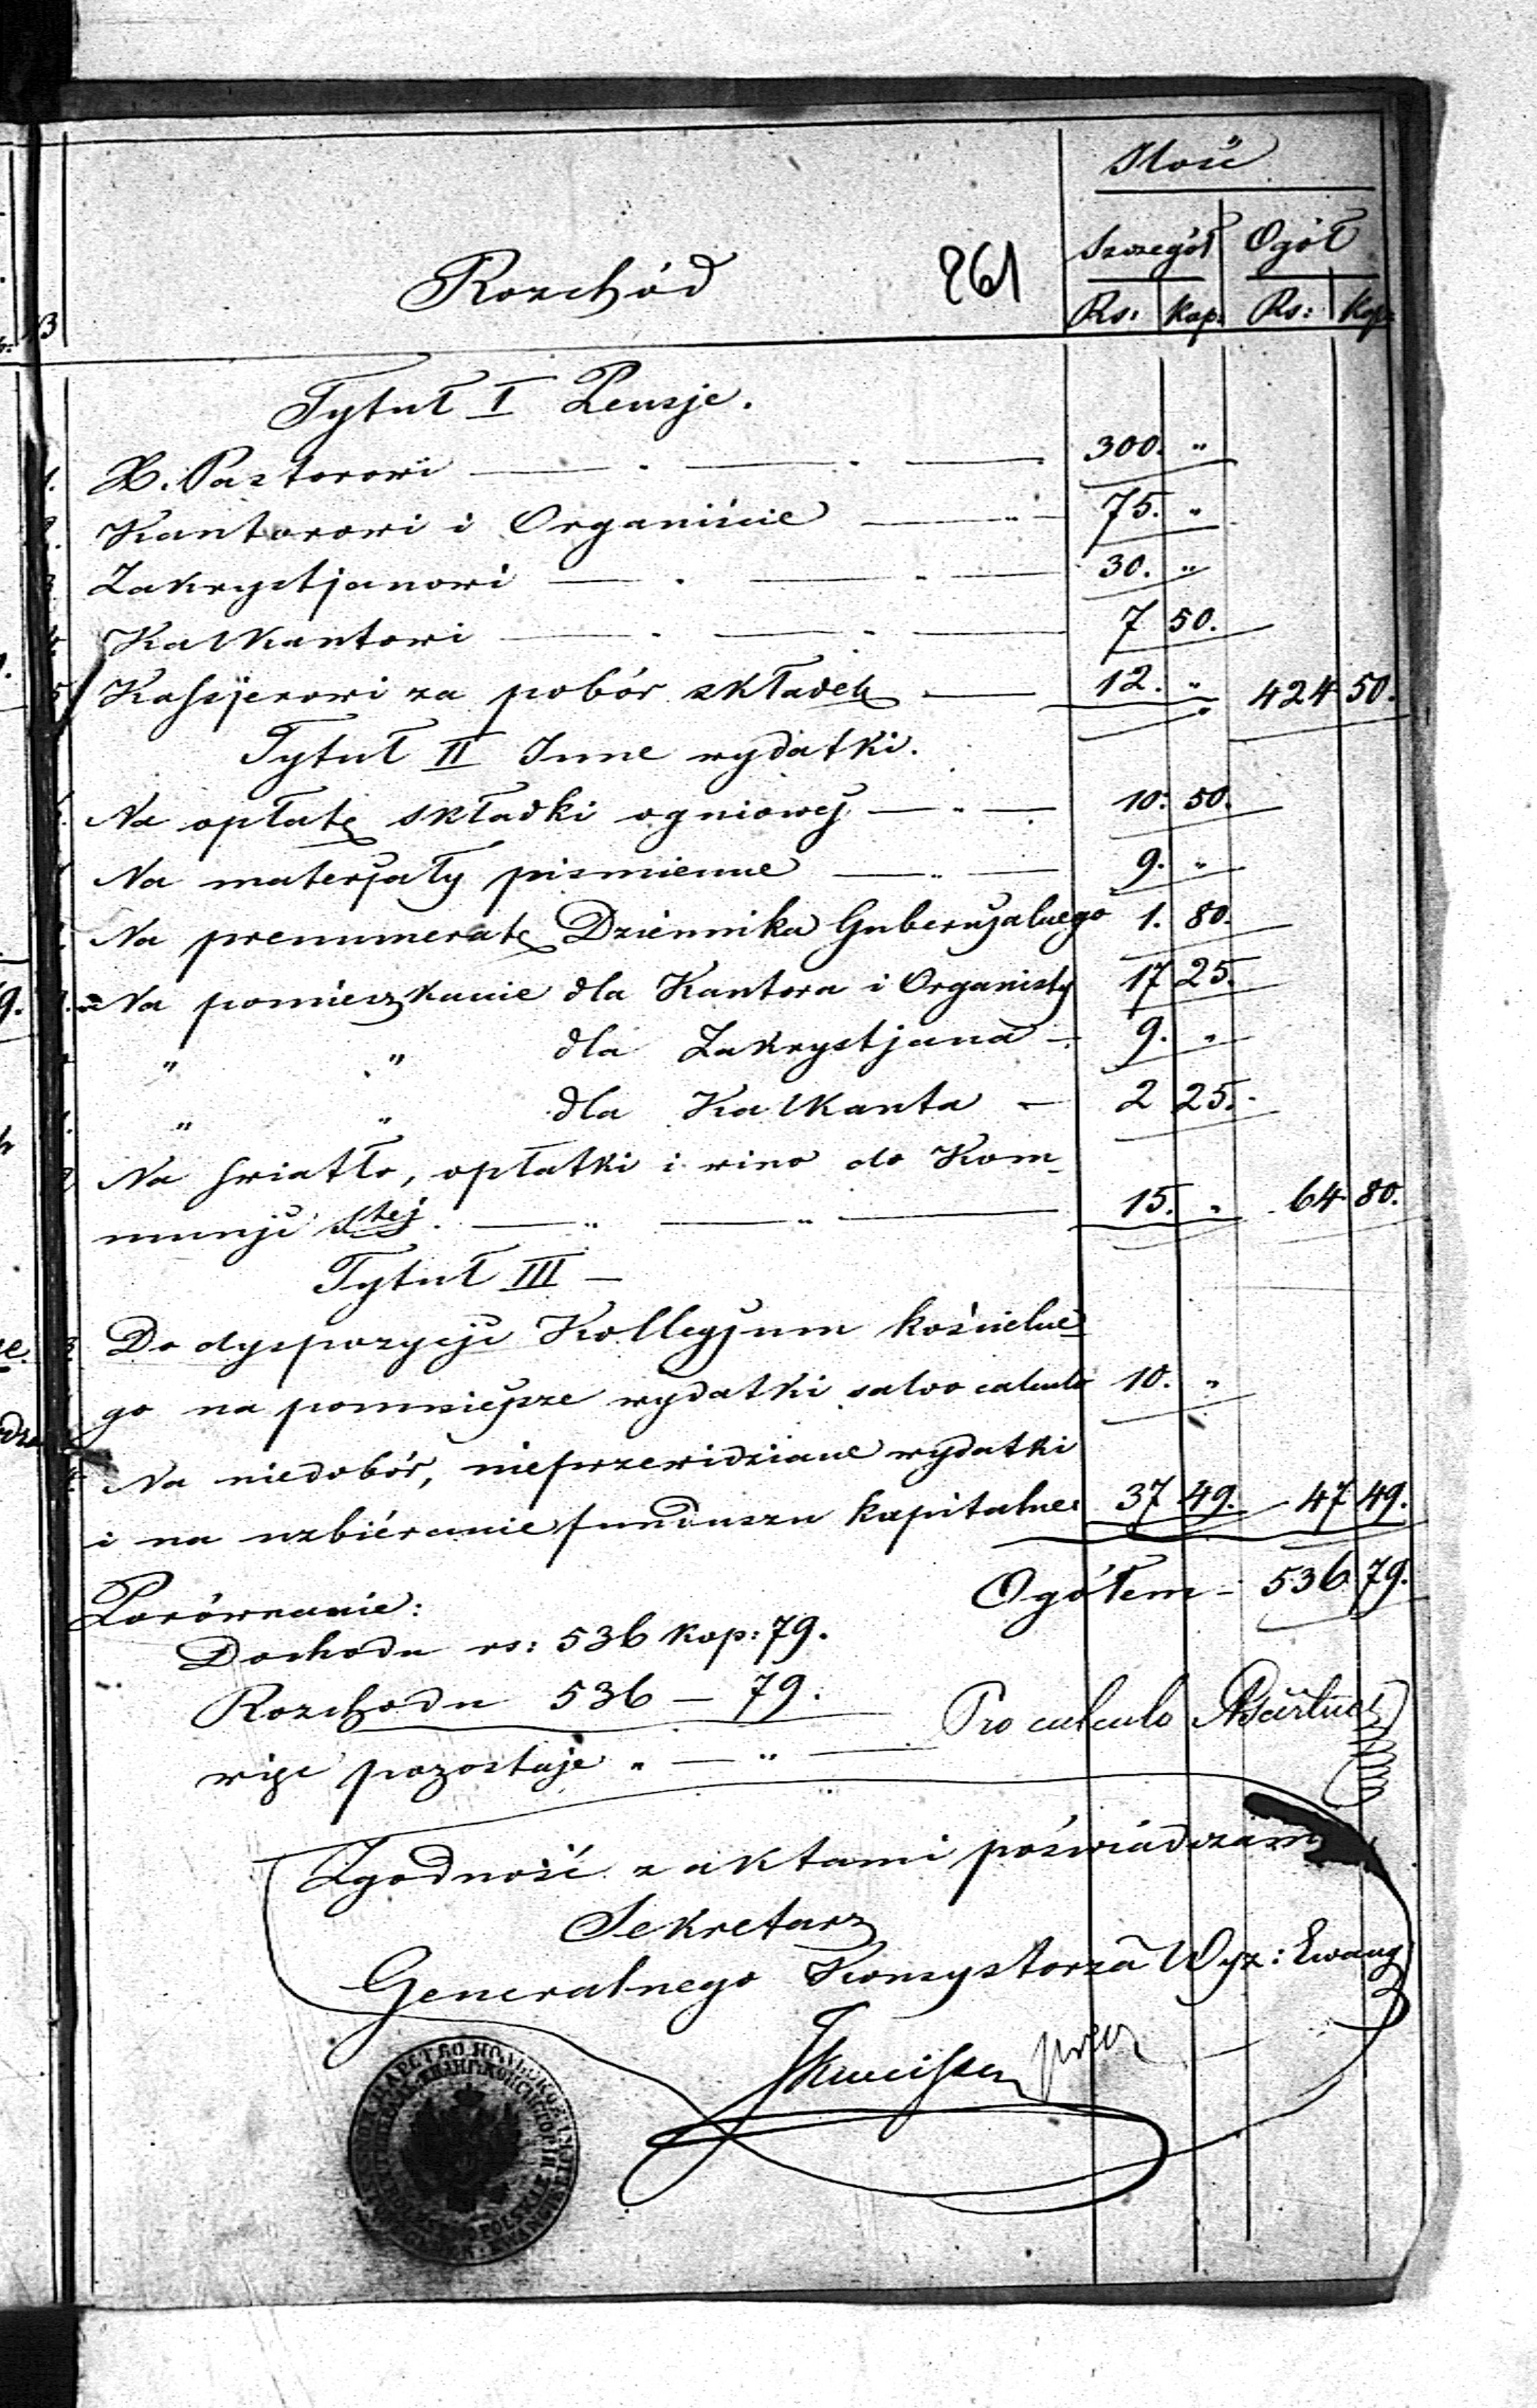 Ilość
Rozchód 261 Szczegół Ogół
Rs: Kop: Rs: Kop:
Tytuł I Pensje.
1. X. Pastorowi 300. "
2. Kantorowi i Organiście 75. "
3. Zakrystjanowi 30. "
4. Kalkantowi 7 50.
5 Kassjerowi za pobór składek 12. " 424 50.
Tytuł II Inne wydatki.
Na opłatę składki ogniowej 10. 50.
Na materjały piśmienne 9. "
Na prenumeratę Dziennika Gubernjalnego 1. 80.
Na pomieszkanie dla Kantora i Organisty 17 25.
" " dla Zakrystjana 9. "
" " dla Kalkanta 2 25.
Na światło, opłatki i wino do Kom
munji Stej. 15. " 64 80.
Tytuł III
Do dyspozycji Kollegjum kościelne
go na pomniejsze wydatki salvo calculo 10. "
Na niedobór, nieprzewidziane wydatki
i na uzbiéranie funduszu kapitalne: 37 49. 47 49.
Ogółem 536 79.
Porównanie:
Dochodu rs: 536 kop: 79.
Rozchodu 536 — 79.
więc pozostaje " — "
Pro calculo
Zgodność z aktami poświadczam
Sekretarz
Generalnego Konsystorza Wyz: Ewang